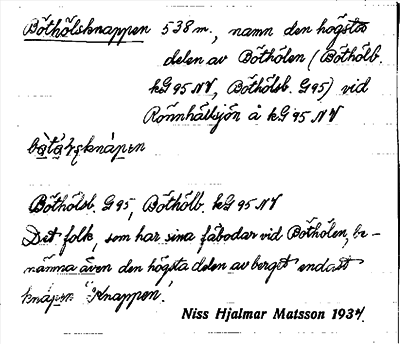 Böthölsknappen 538 m., namn den högsta
delen av Böthölen (Böthölb.
kG 95 NV, Böthölsb. G95) vid
Rönnhällsjön å kG 95 NV
Böthölsb. G95, Böthölb. kG 95 NV
Det folk, som har sina fäbodar vid Böthölen, be-
nämna även den högsta delen av berget endast
knápen "Knappen".
Niss Hjalmar Matsson 1934.